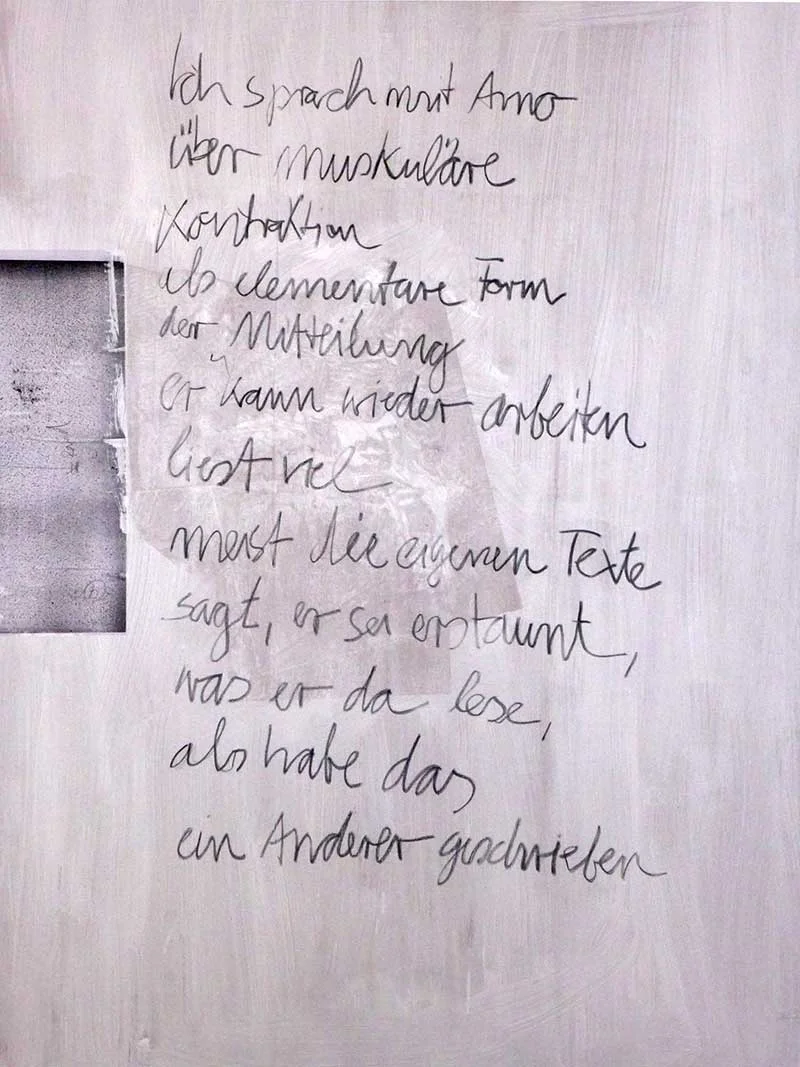 Ich sprach mit Arno
über muskuläre
Kontraktion
als elementare Form
der Mitteilung
er kann wieder arbeiten
liest viel
meist die eigenen Texte
sagt, er sei erstaunt,
was er da lese,
als habe das
ein Anderer geschrieben